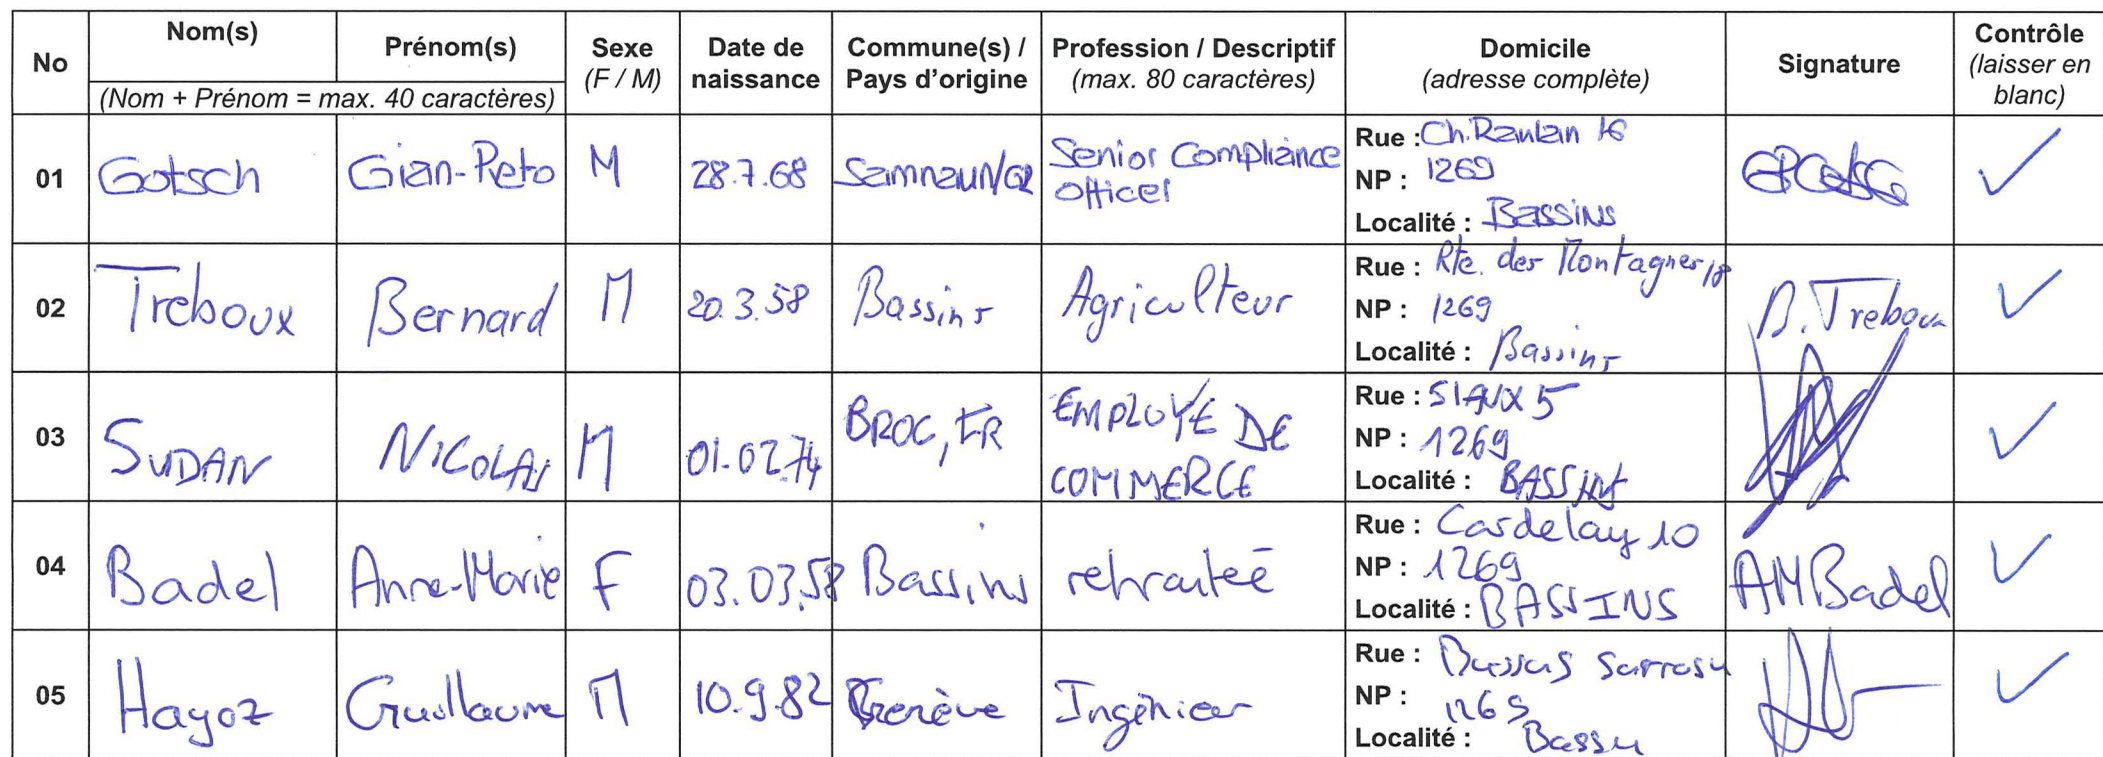 No
Nom(s)
Prénom(s)
(Nom + Prénom = max. 40 caractères)
Sexe
(F / M)
Date de
naissance
Commune(s) /
Pays d'origine
Profession / Descriptif
(max. 80 caractères)
Domicile
(adresse complète)
Signature
Contrôle
(laisser en
blanc)
01
Gotsch
Gian-Reto
M
28.7.68
Samnaun/GR
Senior Compliance
Officer
Rue : Ch. 16
NP : 1269
Localité : Bassins
02
Treboux
Bernard
M
20.3.58
Bassins
Agriculteur
Rue : Rte. des Montagnes 18
NP : 1269
Localité : Bassins
B. Treboux
03
SUDAN
NICOLAS
M
01.02.74
BROC, FR
EMPLOYÉ DE
COMMERCE
Rue : 5
NP : 1269
Localité : BASSINS
04
Badel
Anne-Marie
F
03.03.58
Bassins
retraitée
Rue : Cardelay 10
NP : 1269
Localité : BASSINS
AMBadel
05
Hayoz
Guillaume
M
10.9.82
Genève
Ingénieur
Rue :
NP : 1269
Localité :